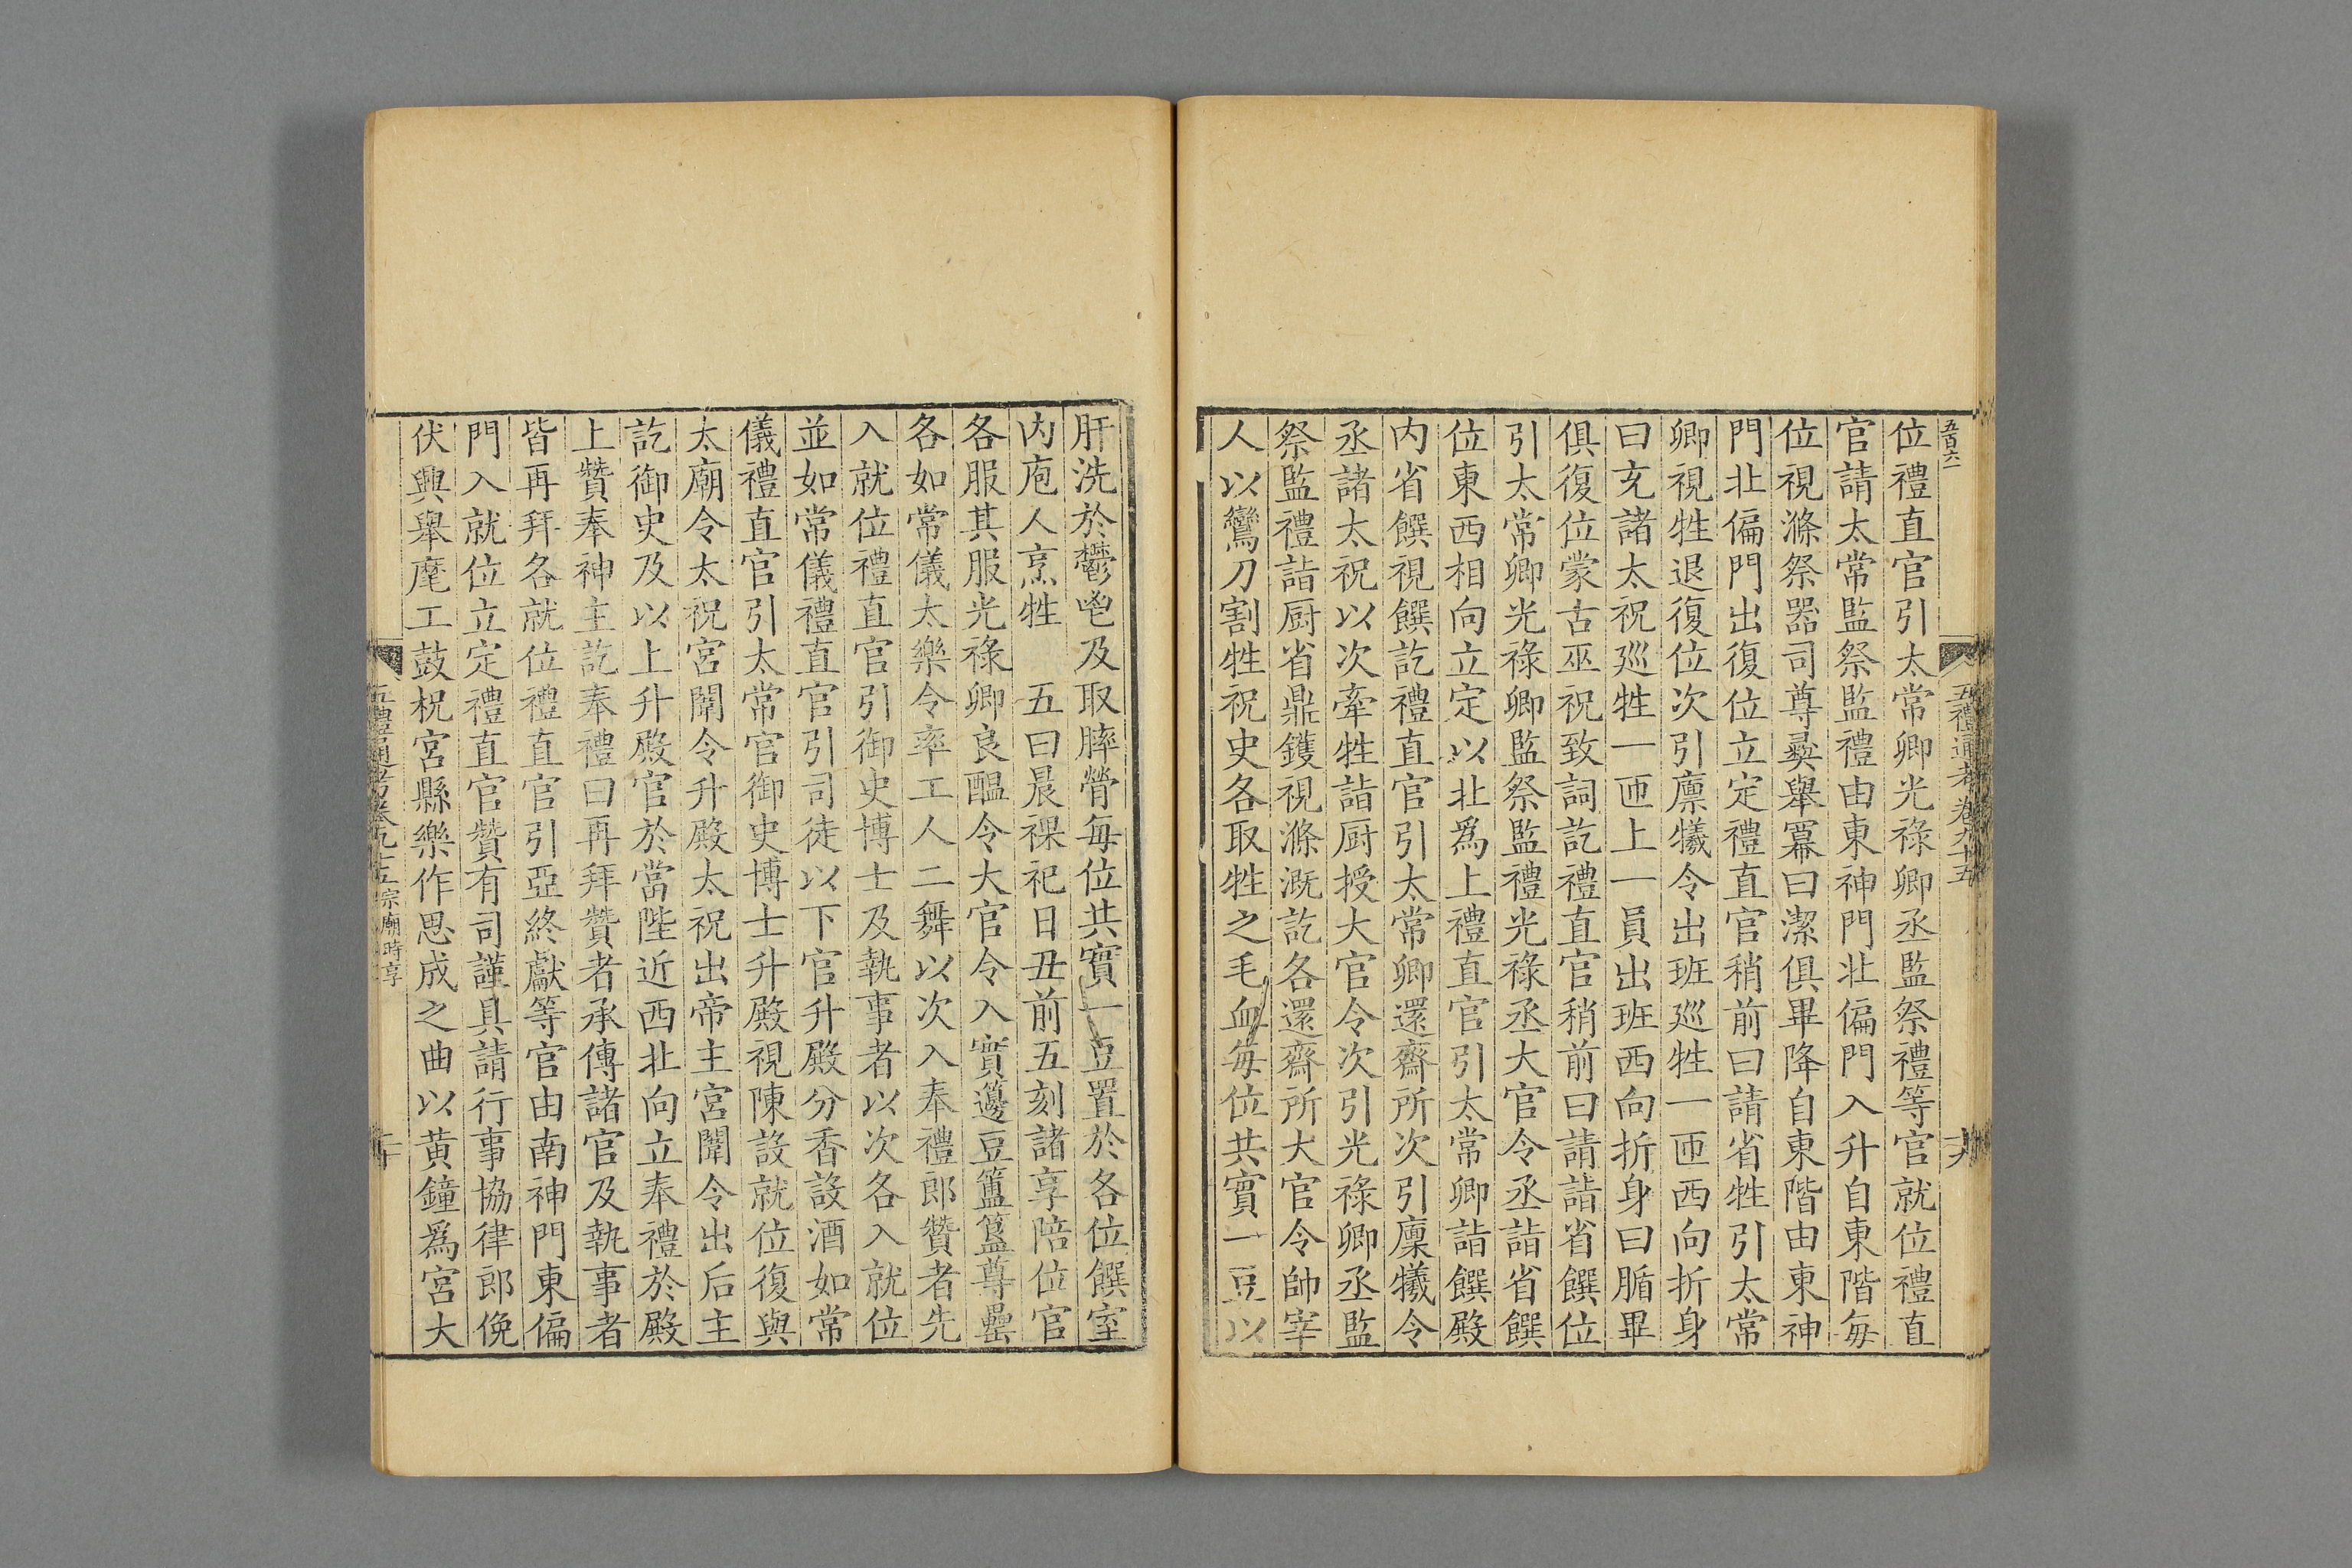 五百六一
五禮通考卷九十五
十九
位禮直官引太常卿光祿卿丞監祭禮等官就位禮直
官請太常監祭監禮由東神門北偏門入升自東階每
位視滌祭器司尊彝舉冪曰潔俱畢降自東階由東神
門北偏門出復位立定禮直官稍前曰請省牲引太常
卿視牲退復位次引廪犧令出班巡牲一匝西向折身
曰充諸太祝巡牲一匝上一員出班西向折身曰腯畢
俱復位蒙古巫祝致詞訖禮直官稍前曰請詣省饌位
引太常卿光祿卿監祭監禮光祿丞大官令丞詣省饌
位東西相向立定以北爲上禮直官引太常卿詣饌殿
内省饌視饌訖禮直官引太常卿還齋所次引廩犧令
丞諸太祝以次牽牲詣厨授大官令次引光祿卿丞監
祭監禮詣厨省鼎鑊視滌溉訖各還齋所大官令帥宰
人以鸞刀割牲祝史各取牲之毛血每位共實一豆以
肝洗於鬱鬯及取膟膋每位共實一豆置於各位饌室
内庖人烹牲　五曰晨祼祀日丑前五刻諸享陪位官
各服其服光祿卿良醖令大官令入實籩豆簠簋尊罍
各如常儀太樂令率工人二舞以次入奉禮郎贊者先
入就位禮直官引御史博士及執事者以次各入就位
並如常儀禮直官引司徒以下官升殿分香設酒如常
儀禮直官引太常官御史博士升殿視陳設就位復與
太廟令太祝宮闈令升殿太祝出帝主宮闈令出后主
訖御史及以上升殿官於當陛近西北向立奉禮於殿
上贊奉神主訖奉禮曰再拜贊者承傳諸官及執事者
皆再拜各就位禮直官引亞終獻等官由南神門東偏
門入就位立定禮直官贊有司謹具請行事協律郎俛
伏興舉麾工鼓柷宮縣樂作思成之曲以黄鐘爲宮大
五禮通考卷九十五 宗廟時享
二十